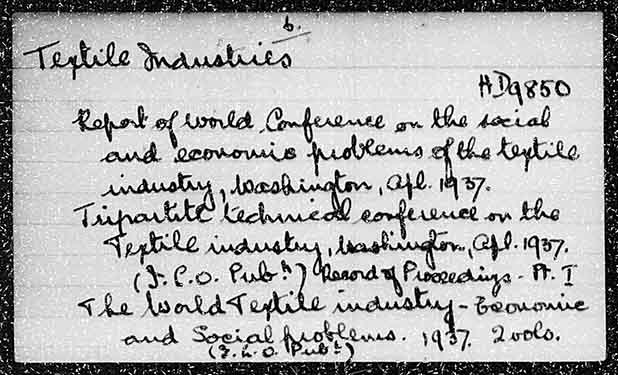 6.
Textile Industries
HD9850
Report of World Conference on the social
and economic problems of the textile
industry, Washington, Apl. 1937.
Tripartite technical conference on the
Textile industry, Washington, Apl. 1937.
(I.L.O. Pubⁿ) Record of Proceedings - Pt. I
The World Textile industry - Economic
and Social problems. 1937. 2 vols.
(I.L.O. Pubⁿ)